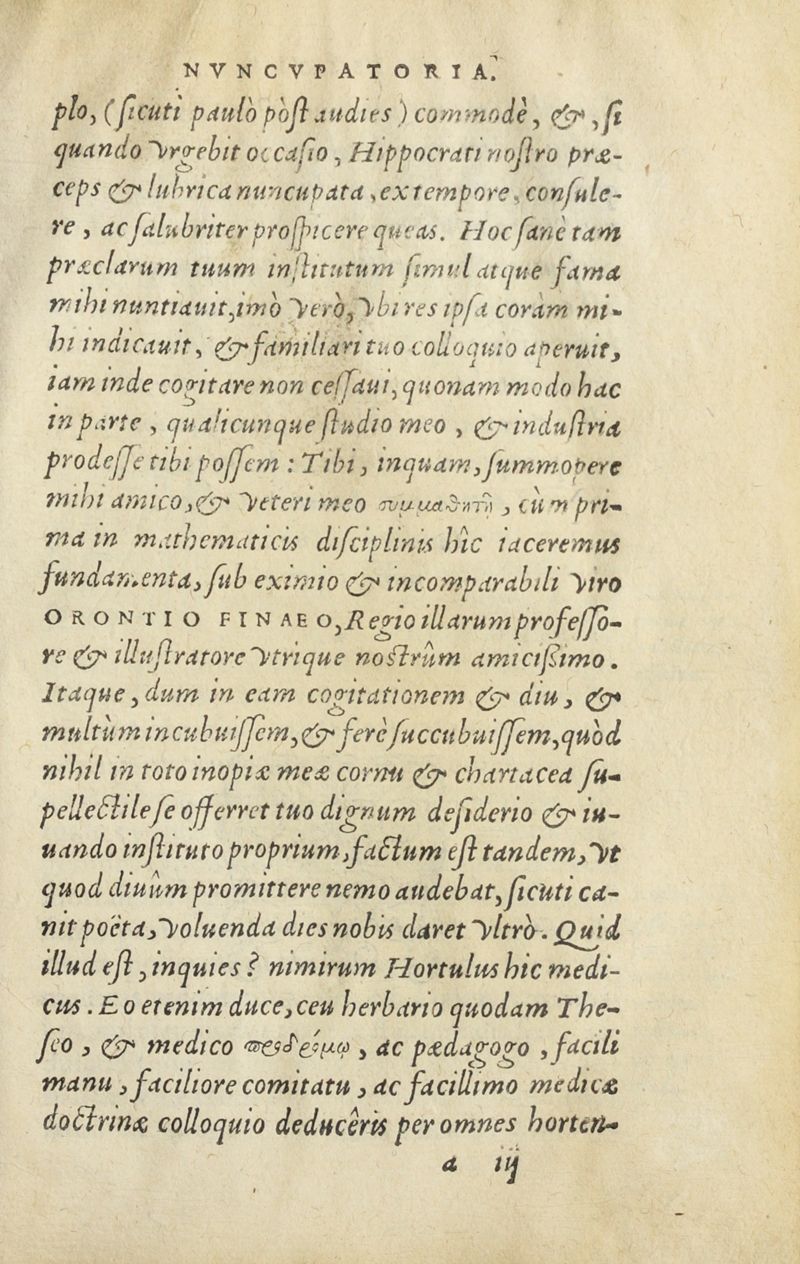 NVNCVPATORIA.
plo, (ſicuti paulò pòſt audies) commodè, & , ſi
quando vrgebit occaſio, Hippocrati noſtro præ-
ceps & lubrica nuncupata, ex tempore, conſule-
re, ac ſalubriter proſpicere queas. Hoc ſanè tam
præclarum tuum inſtitutum ſimul atque fama
mihi nuntiauit, imò verò, vbi res ipſa coràm mi-
hi indicauit, & familiari tuo colloquio aperuit,
iam inde cogitare non ceſſaui, quonam modo hac
in parte, qualicunque ſtudio meo, & induſtria
prodeſſe tibi poſſem : Tibi, inquam, ſummopere
mihi amico, & veteri meo συμμαθητῇ, cùm pri-
ma in mathematicis diſciplinis hîc iaceremus
fundamenta, ſub eximio & incomparabili viro
ORONTIO FINAEO, Regio illarum profeſſo-
re & illuſtratore vtrique noſtrûm amiciſsimo.
Itaque, dum in eam cogitationem & diu, &
multùm incubuiſſem, & ferè ſuccubuiſſem, quòd
nihil in toto inopiæ meæ cornu & chartacea ſu-
pellectile ſe offerret tuo dignum deſiderio & iu-
uando inſtituto proprium, factum eſt tandem, vt
quod diuûm promittere nemo audebat, ſicuti ca-
nit poëta, voluenda dies nobis daret vltrò. Quid
illud eſt, inquies ? nimirum Hortulus hic medi-
cus. Eo etenim duce, ceu herbario quodam The-
ſeo, & medico προδρόμῳ, ac pædagogo, facili
manu, faciliore comitatu, ac facillimo medicæ
doctrinæ colloquio deducêris per omnes horten-
a iij